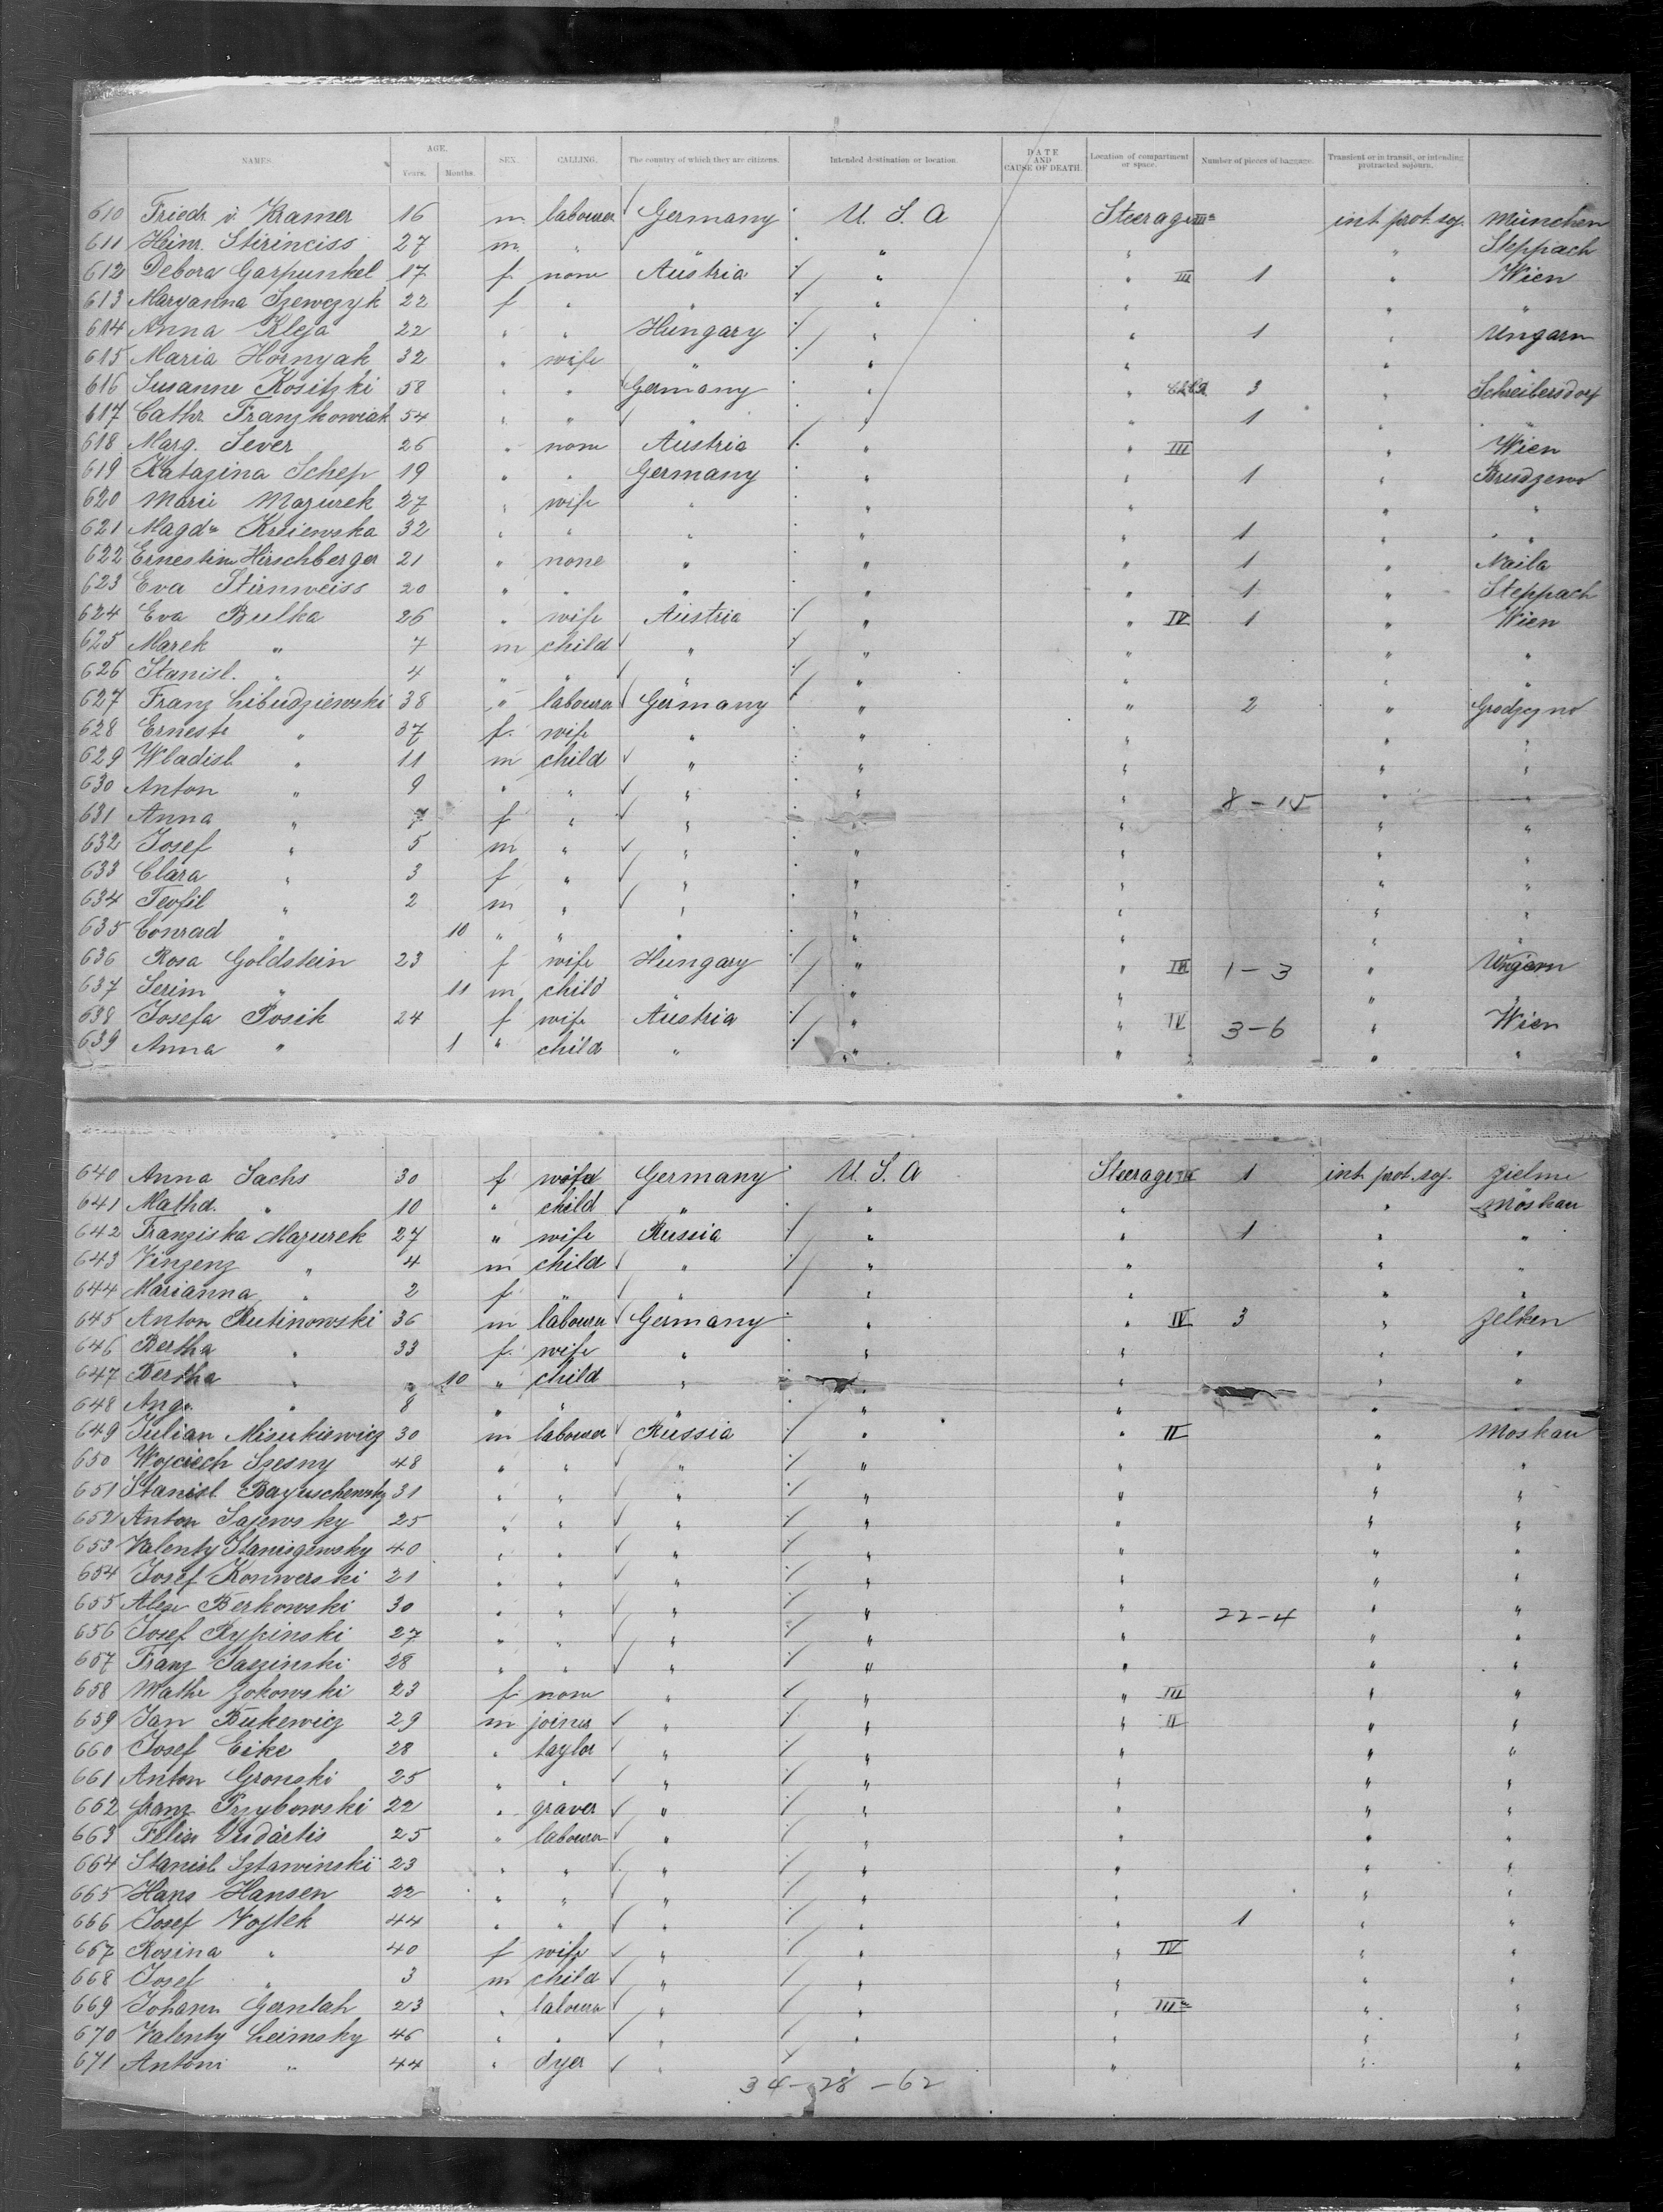 NAMES. AGE. Years. Months. SEX. CALLING. The country of which they are citizens. Intended destination or location. DATE AND CAUSE OF DEATH. Location of compartment or space. Number of pieces of baggage. Transient or in transit, or intending protracted sojourn.
610 Friedr v. Kramer 16 m labourer Germany U. S. A Steerage IIIa int. prot. soj. München
611 Heinr. Stirinciss 27 m " " " " " Steppach
612 Debora Garpunkel 17 f none Austria " " III 1 " Wien
613 Maryanna Szewczyk 22 f " " " " " "
614 Anna Kleja 22 " " Hungary " " 1 " Ungarn
615 Maria Hornyak 32 " wife " " " " "
616 Susanne Kositzki 58 " " Germany " " 3 " Schreibersdorf
617 Cathr. Franzkowiak 54 " " " " " 1 " "
618 Marg. Sever 26 " none Austria " " III " Wien
619 Katazina Schep 19 " " Germany " " 1 " Brudzewo
620 Marie Mazurek 27 " wife " " " " "
621 Magda Kriewska 32 " " " " " 1 " "
622 Ernestine Hirschberger 21 " none " " " 1 " Naila
623 Eva Stirnweiss 20 " " " " " 1 " Steppach
624 Eva Bulka 26 " wife Austria " " IV 1 " Wien
625 Marek " 7 m child " " " " "
626 Stanisl. " 4 " " " " " " "
627 Franz Libudziewski 38 " labourer Germany " " 2 " Grodzczno
628 Erneste " 37 f. wife " " " " "
629 Wladisl " 11 m child " " " " "
630 Anton " 9 " " " " " 8-15 " "
631 Anna " 7 f " " " " " "
632 Josef " 5 m " " " " " "
633 Clara " 3 f " " " " " "
634 Teofil " 2 m " " " " " "
635 Conrad " 10 " " " " " " "
636 Rosa Goldstein 23 f wife Hungary " " III 1-3 " Ungarn
637 Serim " 11 m child " " " " "
638 Josefa Posik 24 f wife Austria " " IV 3-6 " Wien
639 Anna " 1 " child " " " " "
640 Anna Sachs 30 f wife Germany U. S. A Steerage IV 1 int. prot. soj. Zielme
641 Mathd. " 10 " child " " " " Moskau
642 Franziska Mazurek 27 " wife Russia " " 1 " "
643 Vinzenz " 4 m child " " " " "
644 Marianna " 2 f " " " " " "
645 Anton Rutinowski 36 m labourer Germany " " IV 3 " Zelken
646 Bertha " 33 f. wife " " " " "
647 Bertha " 10 " child " " " "
648 Ang. " 8 " " " " " "
649 Julian Misukiewicz 30 m labourer Russia " " II " Moskau
650 Wojciech Szesny 48 " " " " " " "
651 Stanisl. Bayuschewsky 31 " " " " " " "
652 Anton Sajewsky 25 " " " " " " "
653 Valenty Stanisgewsky 40 " " " " " " "
654 Josef Konwerski 21 " " " " " " "
655 Alex Berkowski 30 " " " " " 22-4 " "
656 Josef Rypinski 27 " " " " " " "
657 Franz Saszinski 28 " " " " " " "
658 Mathe Zokowski 23 f none " " " III " "
659 Jan Bukewicz 29 m joiner " " " II " "
660 Josef Eike 28 " taylor " " " " "
661 Anton Gronski 25 " " " " " " "
662 Franz Przybowski 22 " graver " " " " "
663 Felix Vudartis 25 " labourer " " " " "
664 Stanisl Sztawinski 23 " " " " " " "
665 Hans Hansen 22 " " " " " " "
666 Josef Vojtek 44 " " " " " 1 " "
667 Rosina " 40 f wife " " " IV " "
668 Josef " 3 m child " " " " "
669 Johann Gerntah 23 " labourer " " " IIIa " "
670 Valenty Leimsky 46 " " " " " " "
671 Antoni " 44 " dyer " " " " "
34-28-62